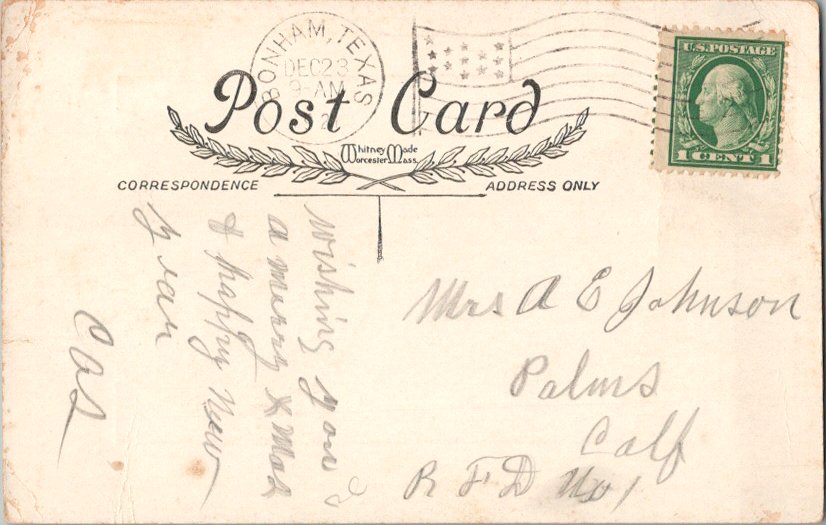 BONHAM, TEXAS
DEC 23
9-AM
U.S. POSTAGE
1 CENT 1
Post Card
Whitney Made
Worcester, Mass.
CORRESPONDENCE
ADDRESS ONLY
wishing you
a merry X Mas
& happy New
year
Cas
Mrs A E Johnson
Palms
Calf
R F D No 1